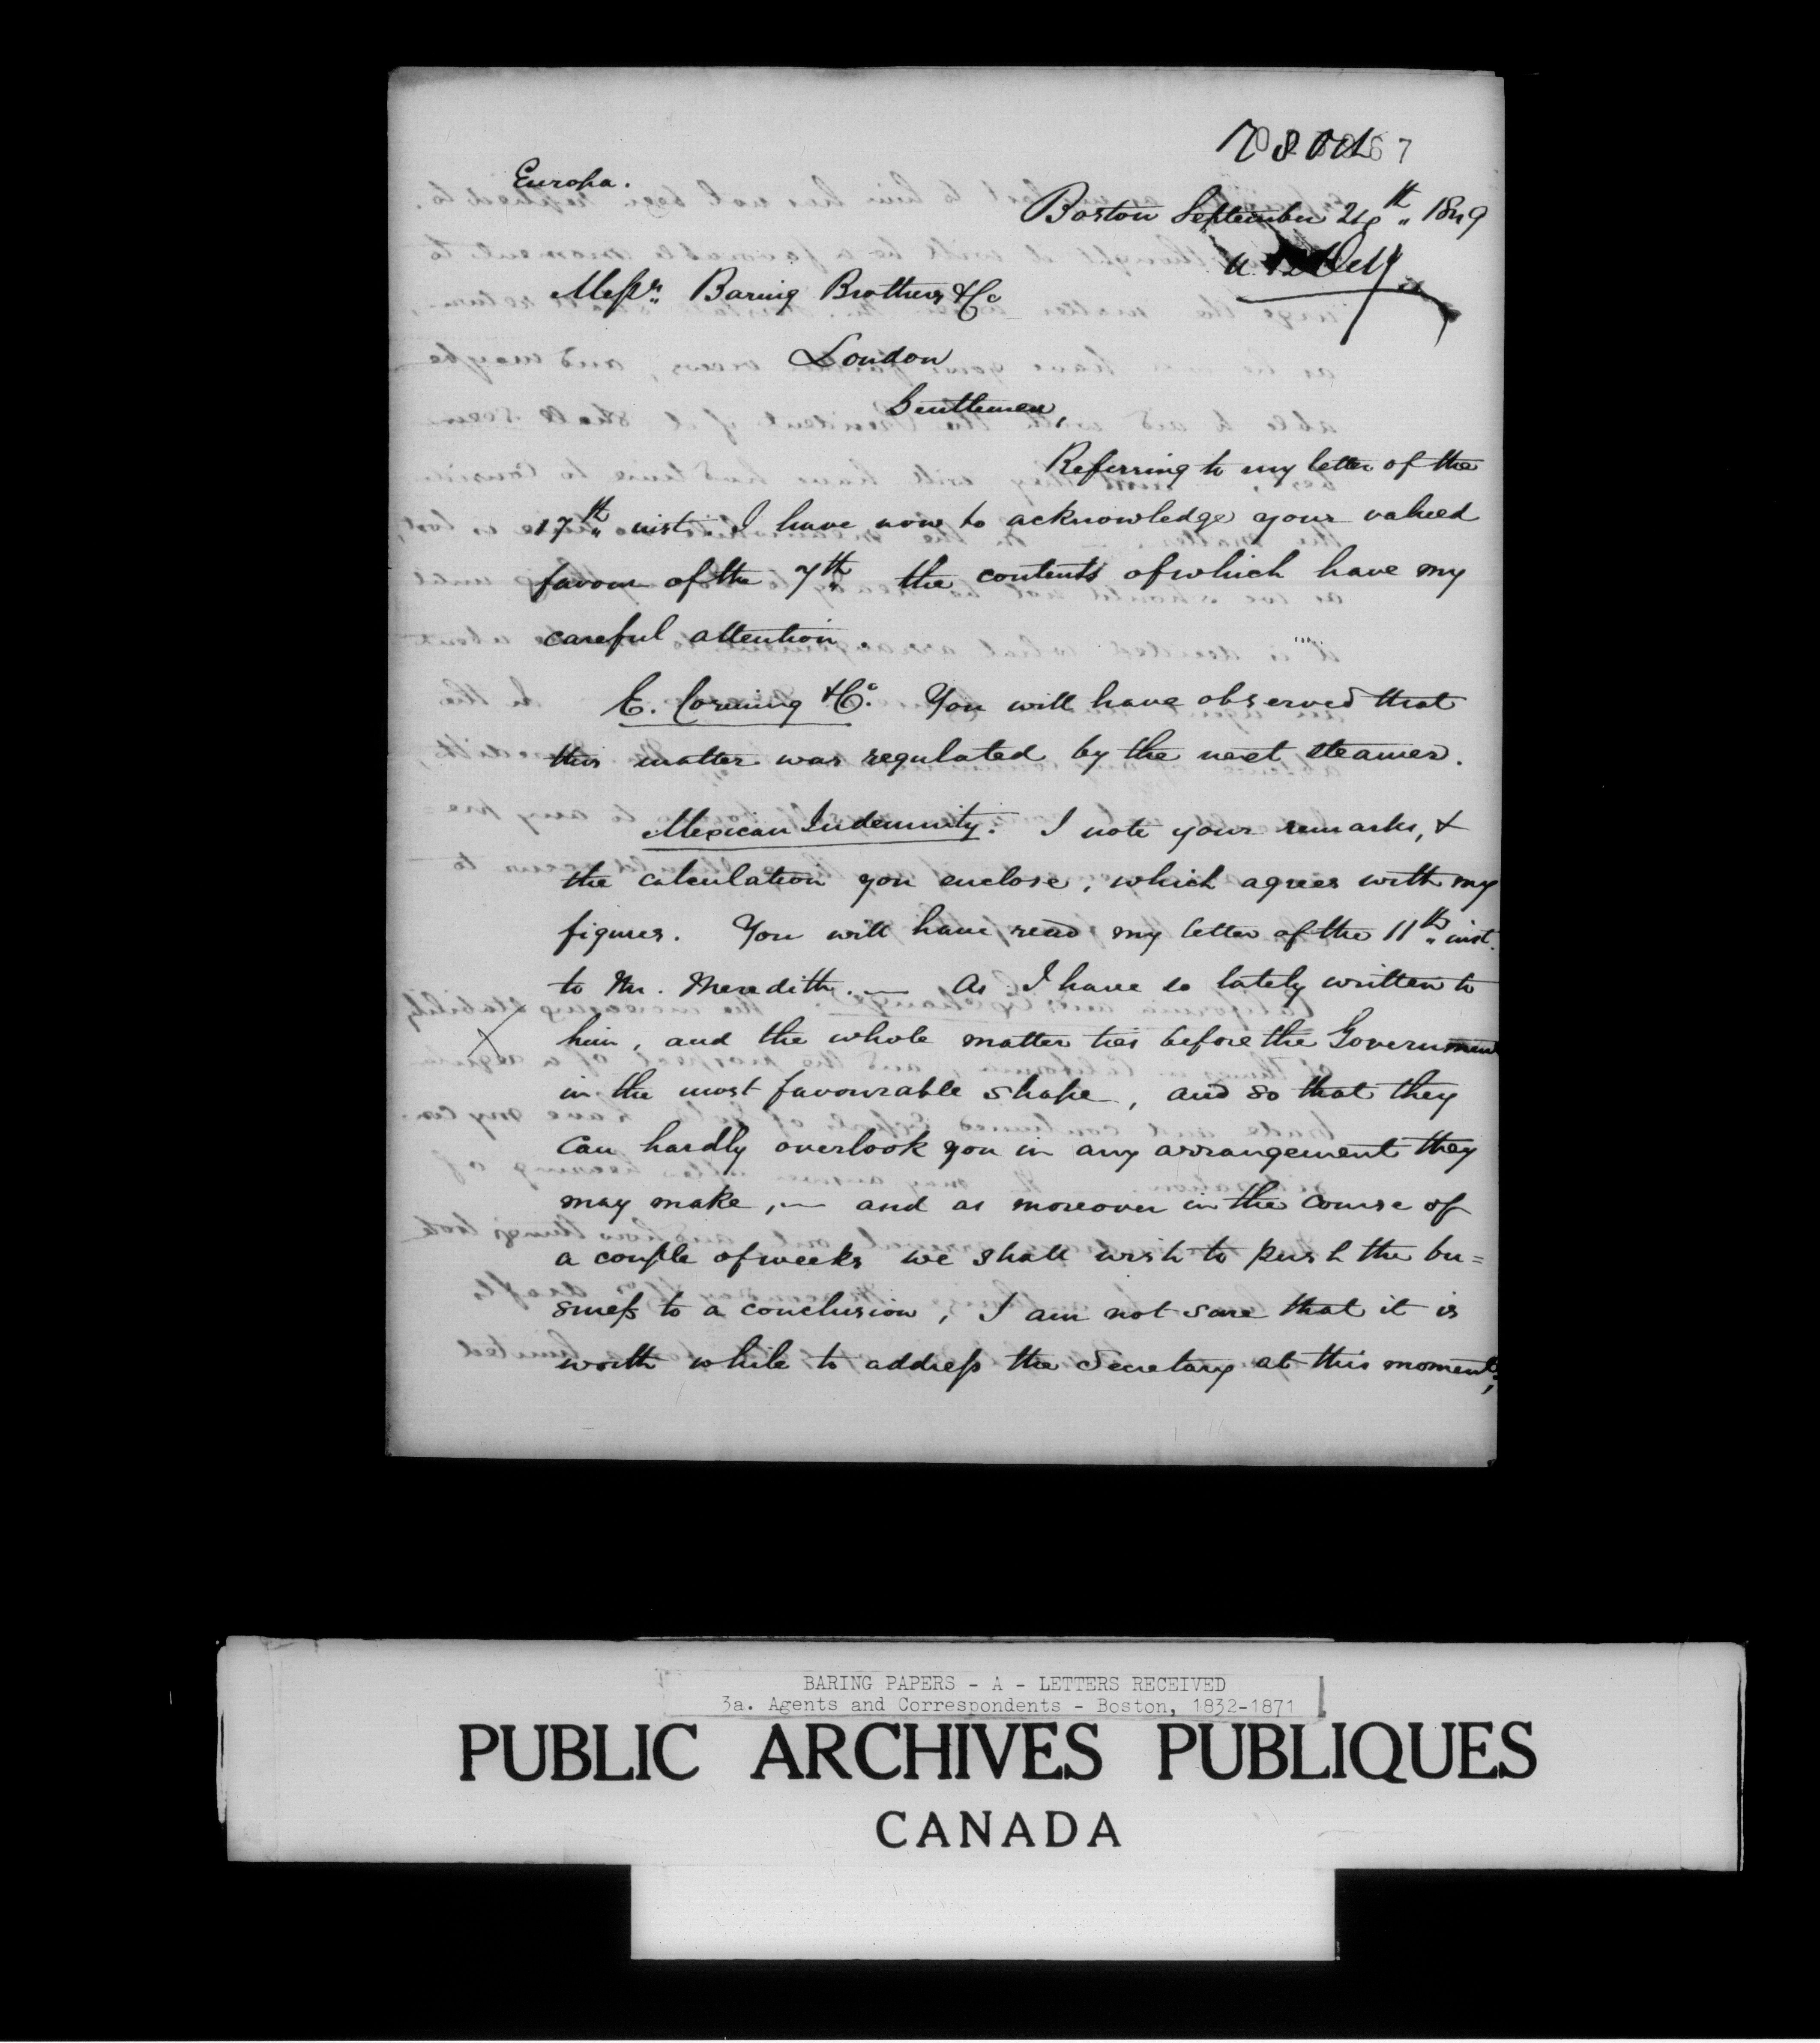 Europa.
Boston September 24th 1849
Messrs. Baring Brothers & Co
London
Gentlemen,
Referring to my letter of the
17th inst. I have now to acknowledge your valued
favour of the 7th the contents of which have my
careful attention.
E. Corning & Co. You will have observed that
this matter was regulated by the next steamer.
Mexican Indemnity. I note your remarks, &
the calculation you enclose, which agrees with my
figures. You will have read my letter of the 11th inst.
to Mr. Meredith. — As I have so lately written to
him, and the whole matter lies before the Government
in the most favourable shape, and so that they
can hardly overlook you in any arrangement they
may make, — and as moreover in the course of
a couple of weeks we shall wish to push the bu=
siness to a conclusion, I am not sure that it is
worth while to address the Secretary at this moment,
BARING PAPERS - A - LETTERS RECEIVED
3a. Agents and Correspondents - Boston, 1832-1871
PUBLIC ARCHIVES PUBLIQUES
CANADA